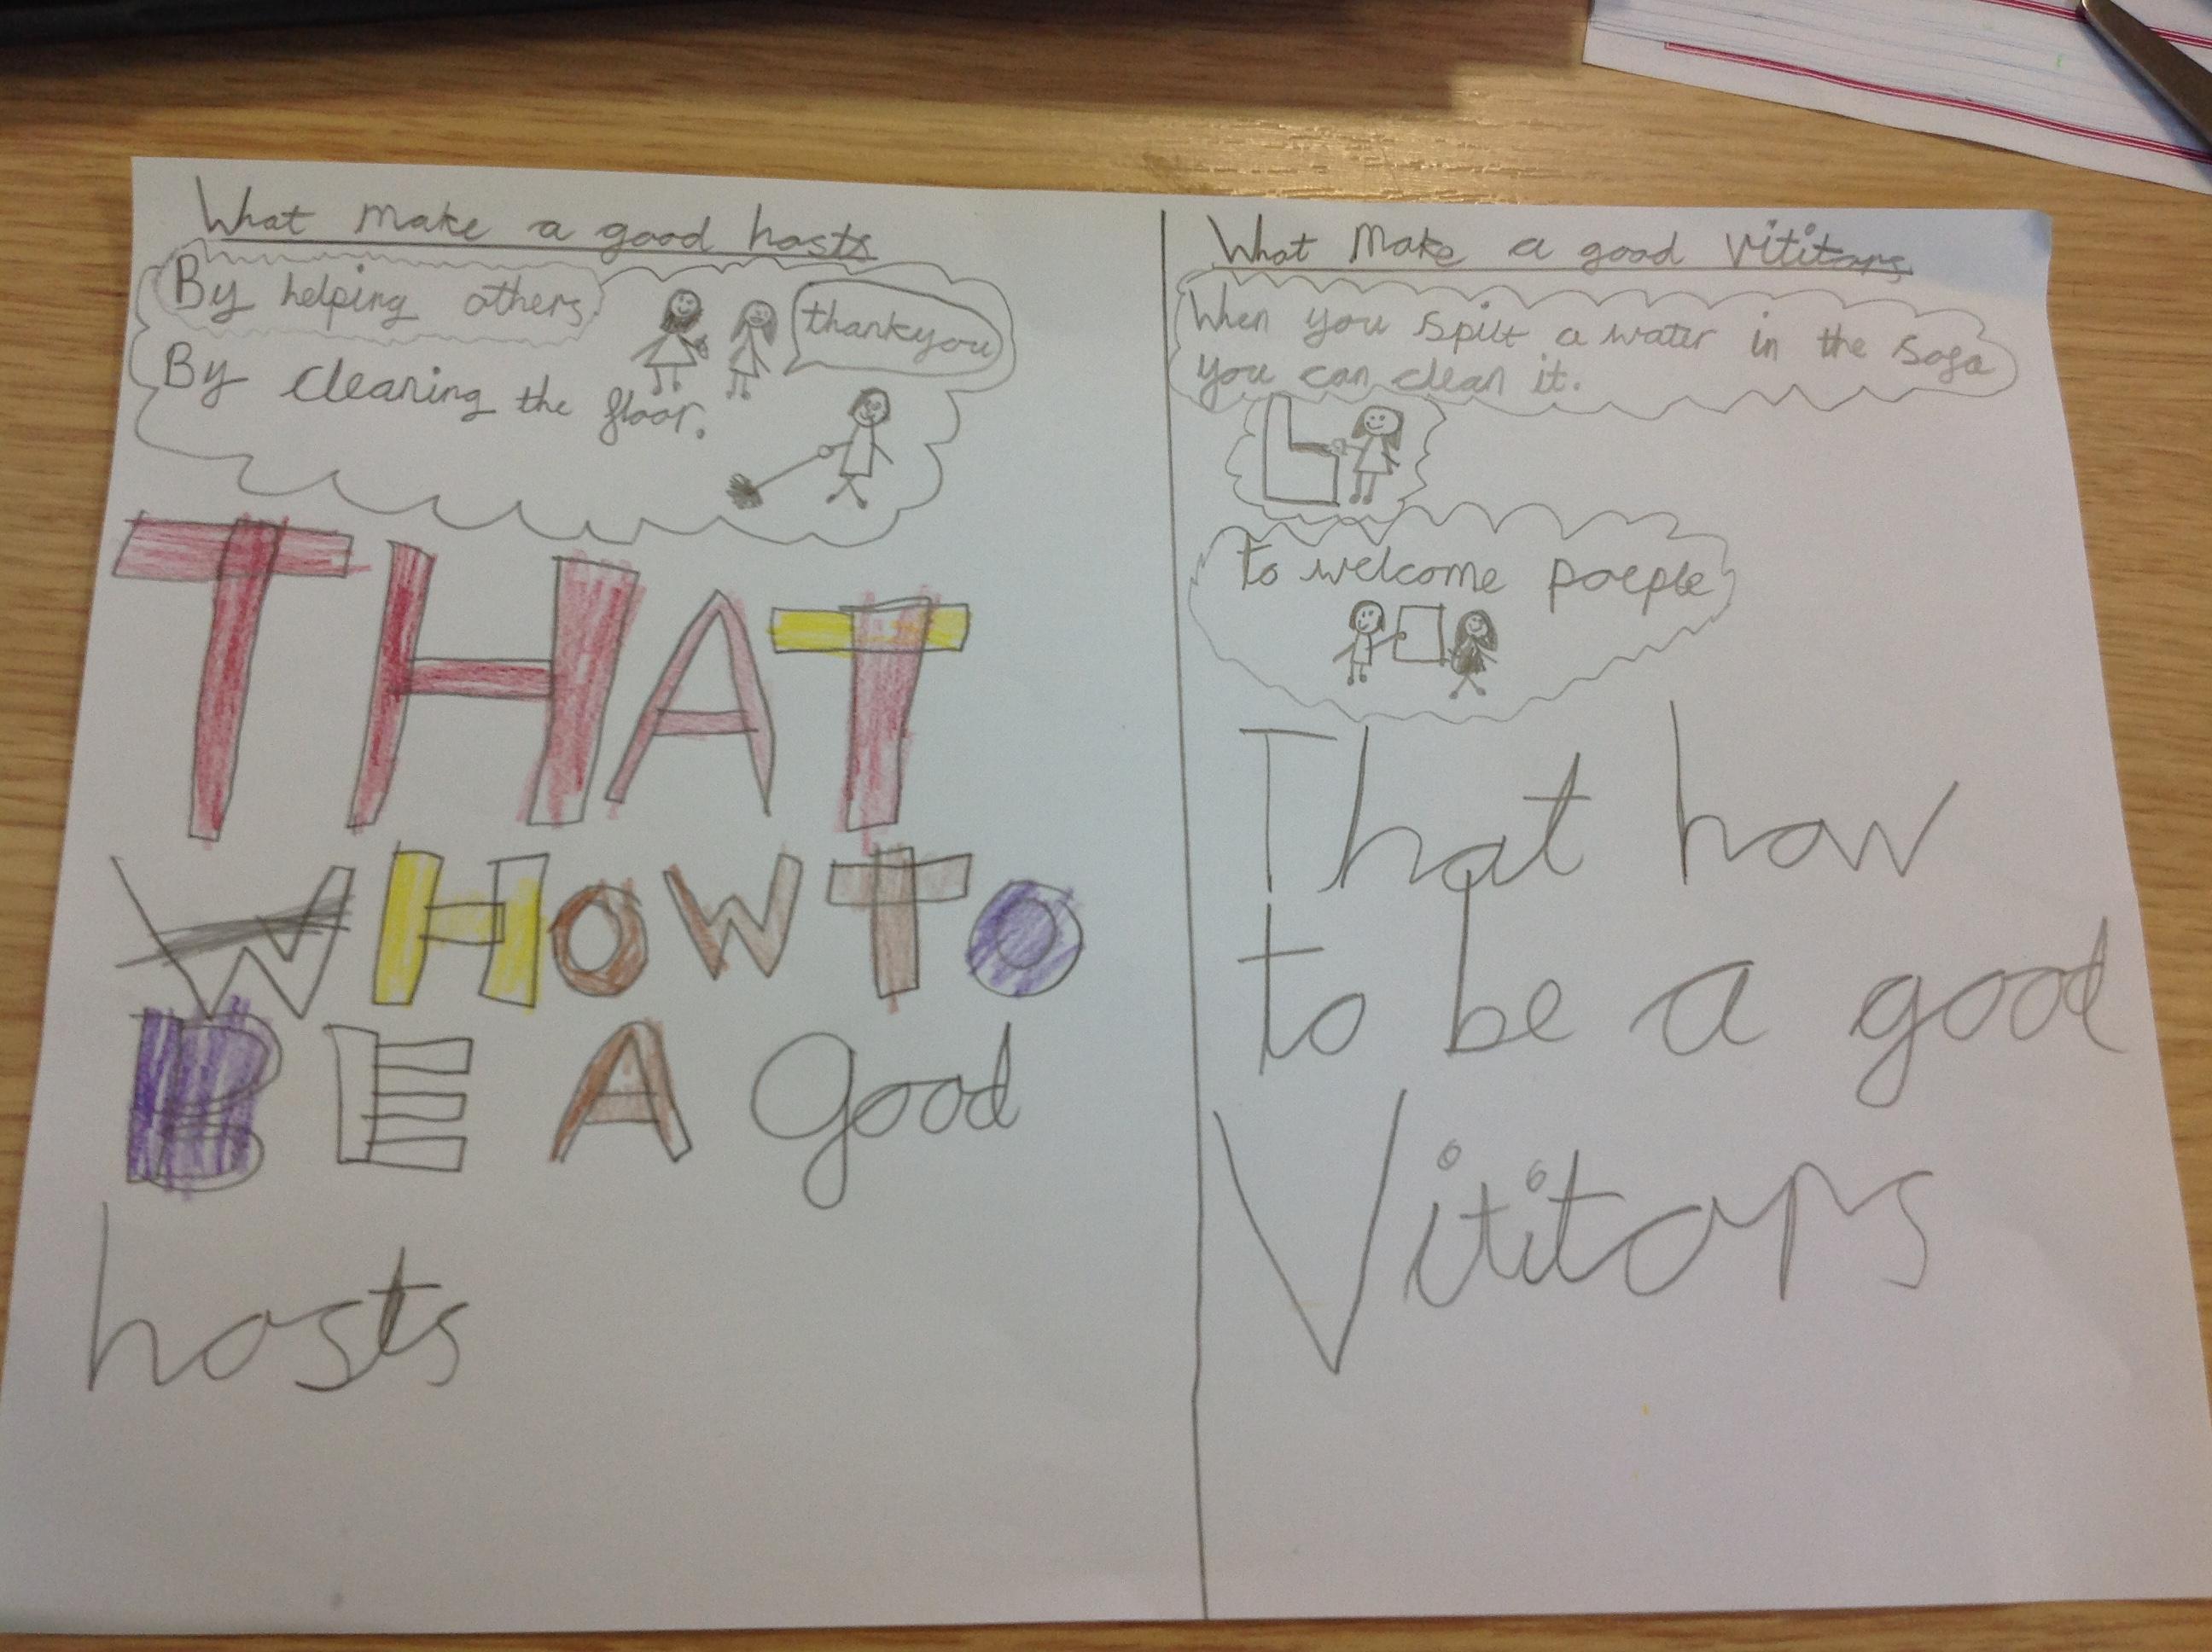 What make a good hosts
By helping others
thankyou
By cleaning the floor.
THAT
W HOW TO
BE A good
hosts
What make a good vititors
When you spilt a water in the sofa
you can clean it.
to welcome poeple
That how
to be a good
Vititors